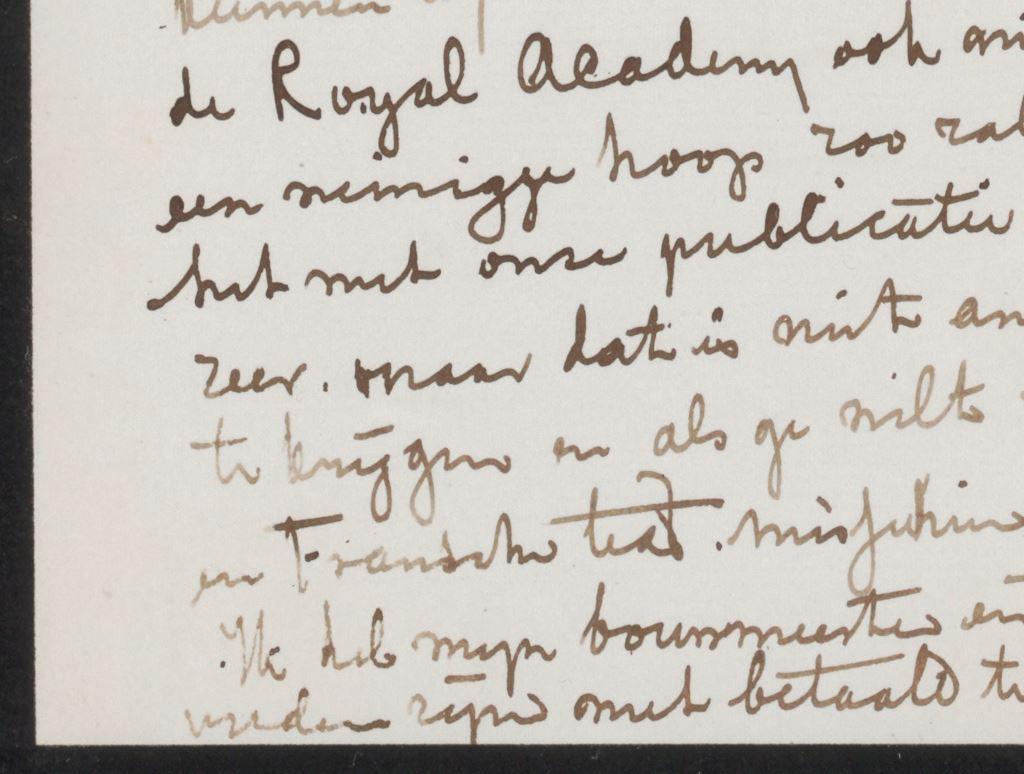 kunnen
de Royal Academy ook
een neimigge hoop zoo zal
het met onze publicatie
zeer. maar dat is niet an
te krijgen en als ge wilt
en Fransche text. misschien
Ik heb mijn bouwmeester en
vrienden zijn met betaald te